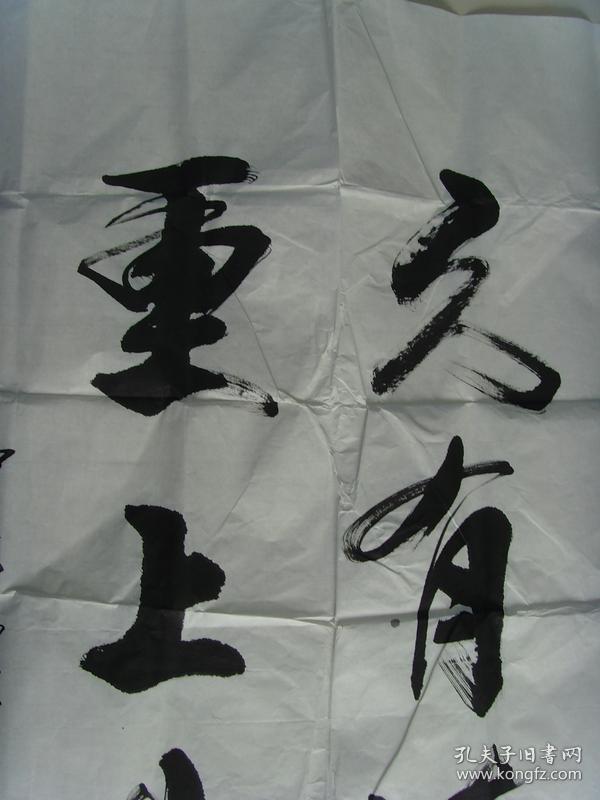 久有
重上
孔夫子旧書网
www.kongfz.com